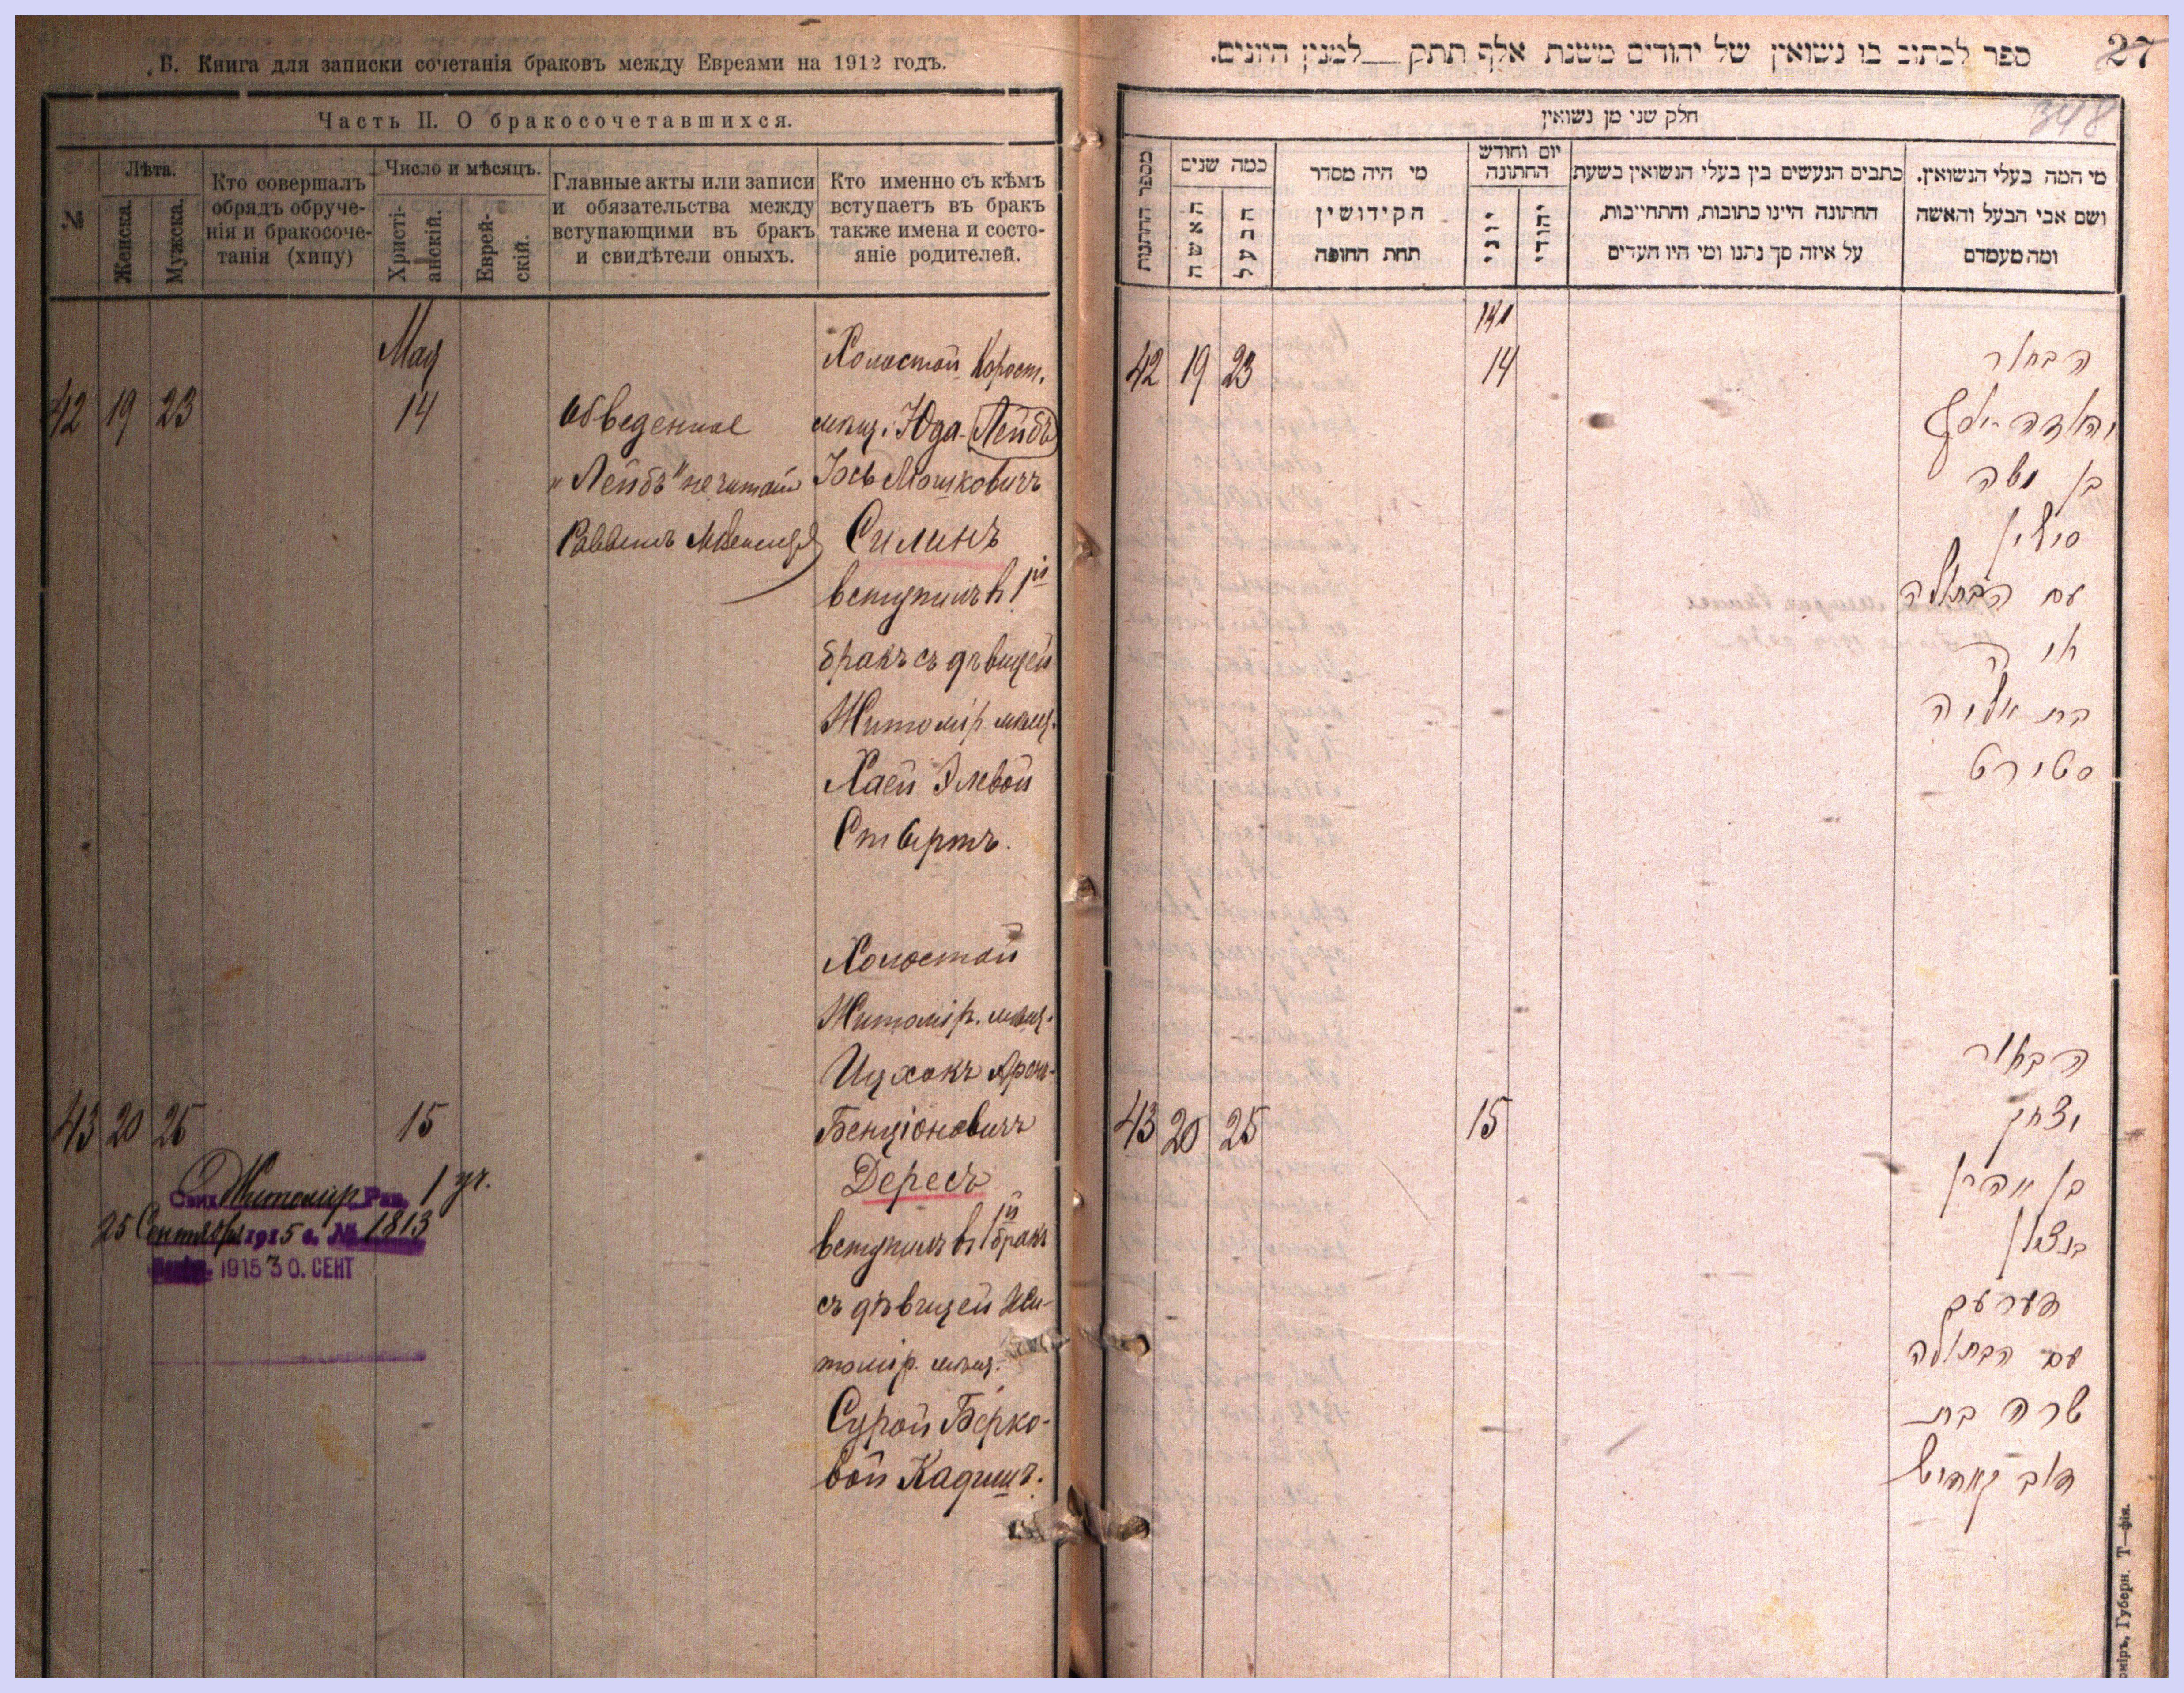 Б. Книга для записки сочетанія браковъ между Евреями на 1912 годъ.
Часть II. О бракосочетавшихся.
№
Лѣта.
Женска.
Мужска.
Кто совершалъ
обрядъ обруче-
нія и бракосоче-
танія (хипу)
Число и мѣсяцъ.
Христі-
анскій.
Еврей-
скій.
Главные акты или записи
и обязательства между
вступающими въ бракъ
и свидѣтели оныхъ.
Кто именно съ кѣмъ
вступаетъ въ бракъ
также имена и состо-
яніе родителей.
Мая
42 19 23 14
Обведенное
"Лейбъ" не читать
Раввинъ
Холостой Корост.
мѣщ. Юда-Лейбъ
Іось Мошковичъ
Силинъ
вступилъ въ 1й
бракъ съ дѣвицей
Житомір. мѣщ.
Хаей Элевой
Ствертъ.
43 20 25 15
Холостой
Житомір. мѣщ.
Ицхокъ Аронъ-
Бенціоновичъ
Дересъ
вступилъ въ 1й бракъ
съ дѣвицей Жи-
томір. мѣщ.
Сурой Берко-
вой Кадишъ.
Житомір. Рав. 1 уч.
25 Сентября 1915 г. № 1813
1915 30. СЕНТ
27
ספר לכתוב בו נשואין של יהודים משנת אלף תתק __ למנין היונים.
348
חלק שני מן נשואין
מספר החתונות
כמה שנים
האשה
הבעל
מי היה מסדר
הקידושין
תחת החופה
יום וחודש
החתונה
יוני
יהודי
כתבים הנעשים בין בעלי הנשואין בשעת
החתונה היינו כתובות, והתחייבות,
על איזה סך נתנו ומי היו העדים
מי המה בעלי הנשואין.
ושם אבי הבעל והאשה
ומה מעמדם
מאי
42 19 23 14
הבחור
יהודה יוסף
בן משה
סילין
עם הבתולה
חיה
בת אליה
סטירט
43 20 25 15
הבחור
יצחק
בן אהרן
בנציון
דערעס
עם הבתולה
שרה בת
דוב קאדיש
оміръ, Губерн. Т—фія.